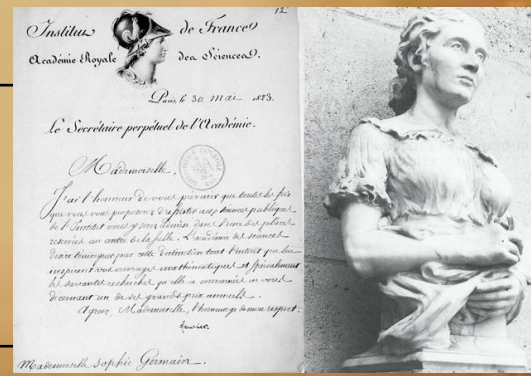 12
Institut de France
Académie Royale des Sciences.
Paris le 30 mai 1823.
Le Secrétaire perpétuel de l'Académie.
Mademoiselle,
J'ai l'honneur de vous prévenir que toutes les fois
que vous vous proposerez d'assister aux séances publiques
de l'Institut vous y serez admise dans l'une des places
réservées au centre de la salle. L'académie des sciences
désire témoigner par cette distinction tout l'intérêt que lui
inspirent vos ouvrages mathématiques et spécialement
les savantes recherches qu'elle a couronnées en vous
décernant un de ses grands prix annuels.
Agréez, Mademoiselle, l'hommage de mon respect.
fourier
Mademoiselle Sophie Germain.